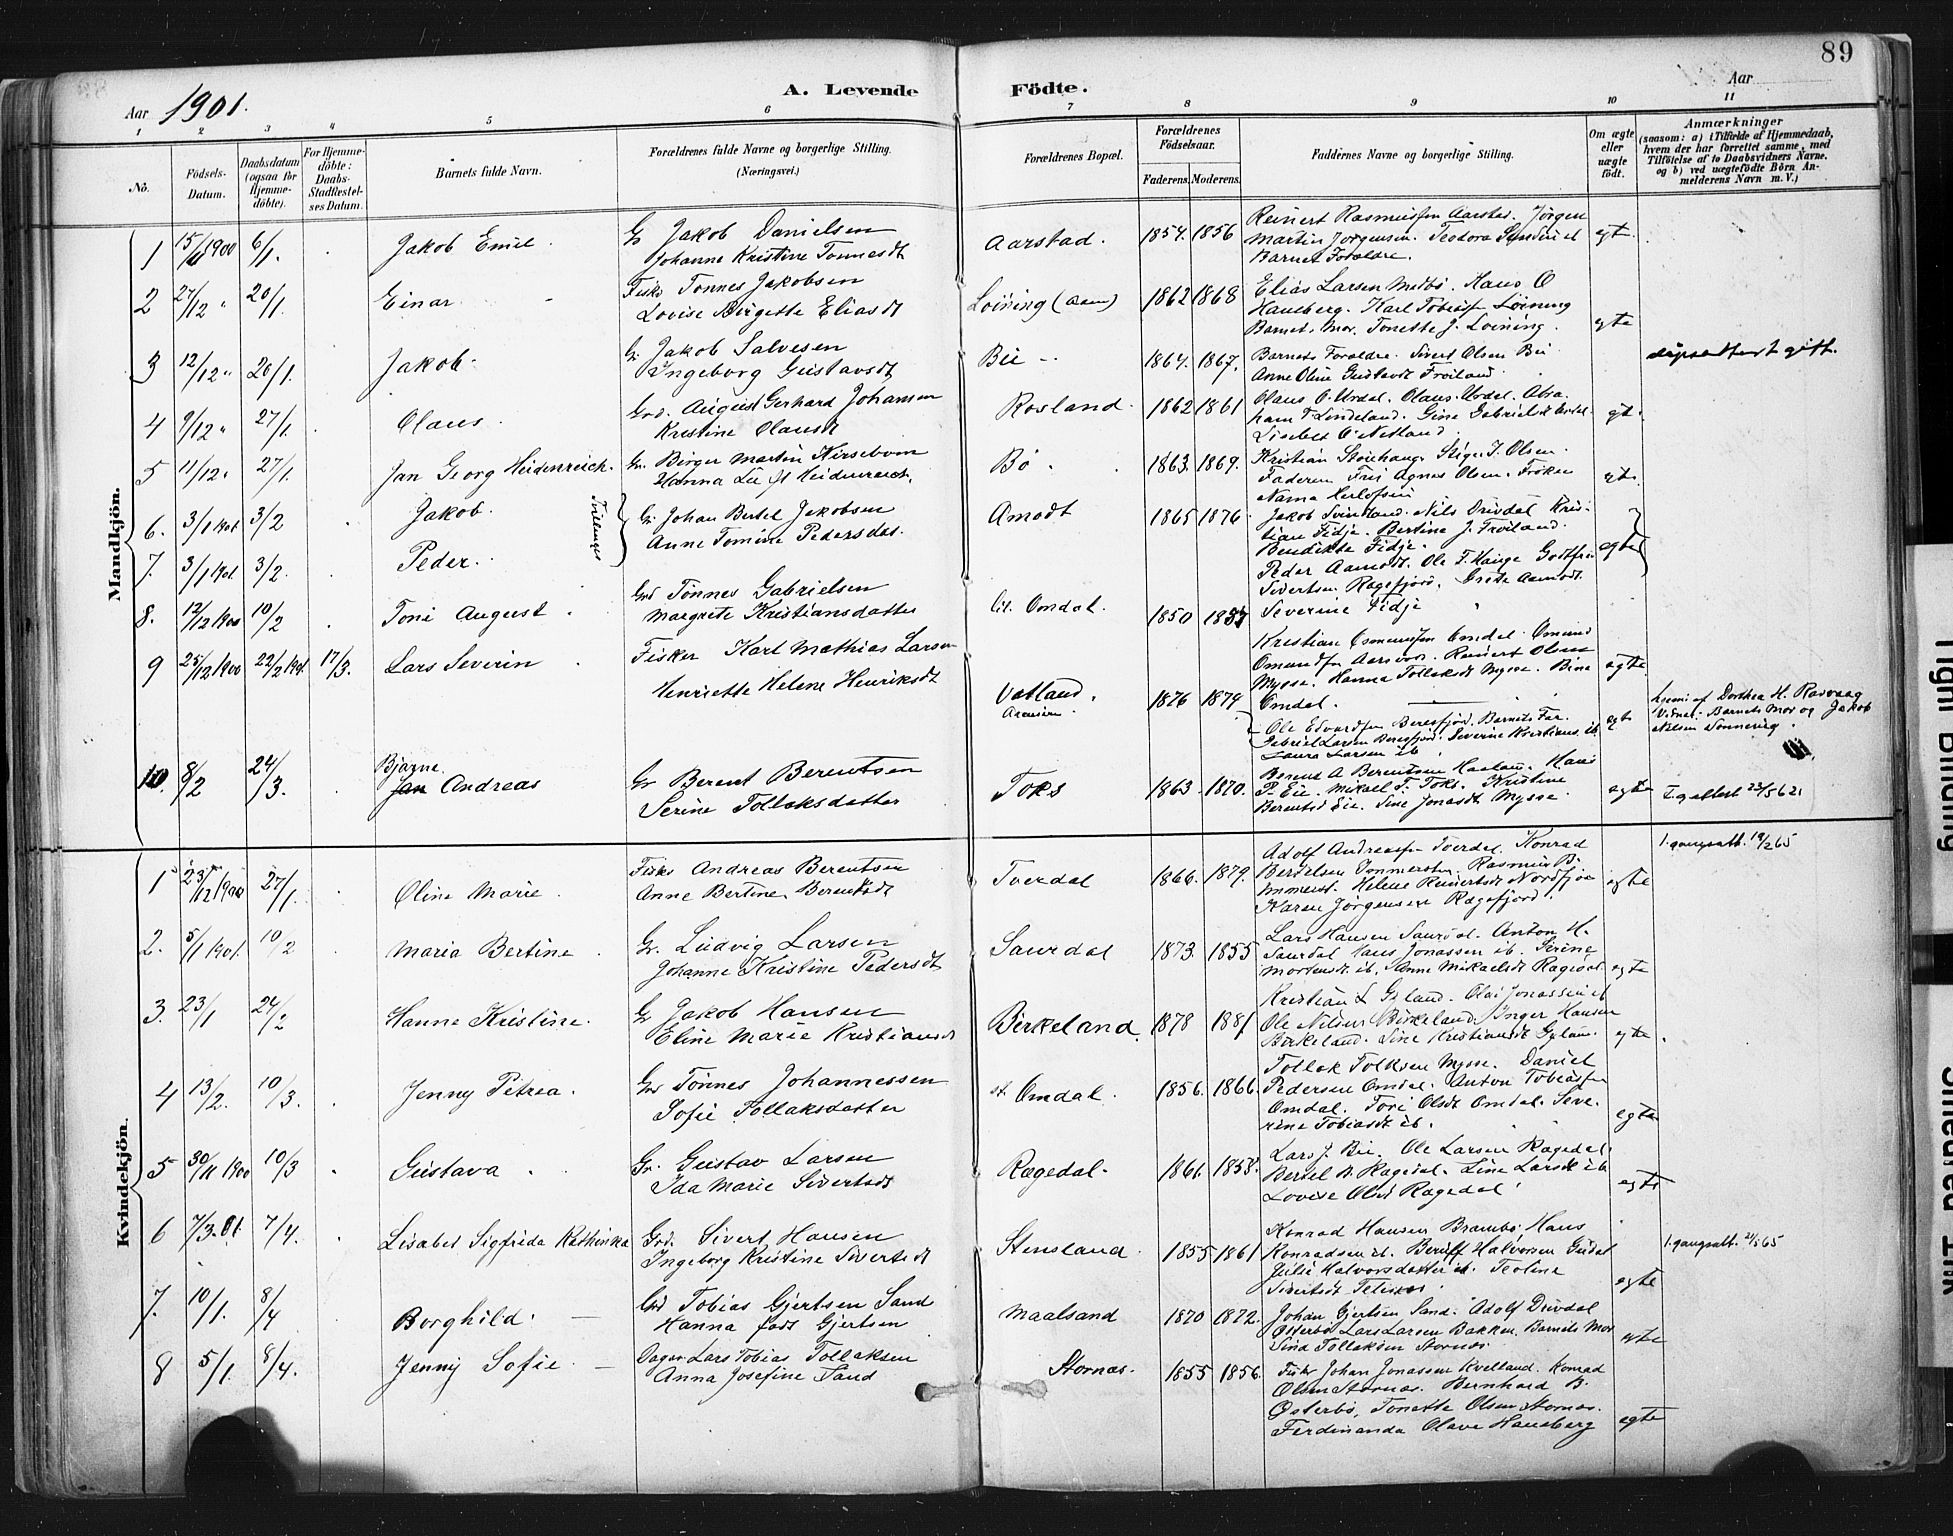 89
Aar 1901.
A. Levende Födte.
Aar
1 2 3 4 5 6 7 8 9 10 11
No.
Födsels-Datum.
Daabsdatum (ogsaa for Hjemme-döbte).
For Hjemme-döbte: Daabs-Stadfæstel-ses Datum.
Barnets fulde Navn.
Forældrenes fulde Navne og borgerlige Stilling.
(Næringsvei.)
Forældrenes Bopæl.
Forældrenes Födselsaar.
Faderens. Moderens.
Faddernes Navne og borgerlige Stilling.
Om ægte eller uægte födt.
Anmærkninger
(saasom: a) i Tilfælde af Hjemmedaab,
hvem der har forrettet samme, med
Tilföielse af to Daabsvidners Navne,
og b) ved uægtefödte Börn An-
melderens Navn m. V.)
Mandkjön.
1 15/11 1900 6/1. Jakob Emil. Gr Jakob Danielsen
Johanne Kristine Tonnesdt
Aarstad. 1854. 1856
Reinert Rasmussen Aarstad. Jörgen
Martin Jorgensen. Teodora
Barnets Foraldre. egte.
2 27/12 " 20/1. Einar Fisk Tonnes Jakobsen
Lovise Birgitte Eliasdt
Loining (Aam) 1862 1868
Elias Larsen Midbö. Hans O
Haneberg. Karl Tobiasn Löining
Barnets Mor. Tonette J. Loining. egte
3 12/12 " 20/1. Jakob. Gr. Jakob Salvesen
Ingeborg Gustavsdt
Bie 1864. 1867.
Barnets Foraldre. Sivert Olsen Bie
Anne Oline Gustavdt Froiland
4 9/12 " 27/1. Olaus. Grd. August Gerhard Johansen
Kristine Olausdt
Rosland. 1862 1861
Olaus O. Urdal. Olaus Urdal. Abra-
ham T Lindeland. Gine Gabrielsdt
Lisebet O. Netland. gt.
5 11/12 " 27/1. Jan Georg Heidenreich. Gr. Birger Martin Kirsebom
Hanna Lie f. Heidenreich.
Bö. 1863. 1869.
Kristian Stoiehaug. Stiger J. Olsen.
Faderen Fru Agnes Olsen. Fröken
Nanna Herlofsen gt.
6. 3/1 1901 3/2 Jakob. Tvillinger
Gr. Johan Bertel Jakobsen
Anne Tomine Pedersdat.
Amodt 1865 1876.
Jakob Svindland. Nils Drivdal Kris-
tian Fidje. Bertine J. Froiland.
Bendikte Fidje.
7. 3/1 1901. 3/2. Peder.
Peder Aamodt. Ole F. Hauge Godtfred
Sivertsen Ragefjord. Grete Aamodt.
Severine Fidje egte
8. 12/12 1900 10/2 Toni August Grd Tönnes Gabrielsen
Margrete Kristiansdatter
lit. Omdal. 1850
Kristian Osmundsen Omdal. Omund
Omundsn Aarsvod. Reinert Olsen
Mysse. Hanna Tollaksdt Mysse. Bina
Omdal. egte
9 25/12 1900 22/2 1901. 17/3. Lars Severin Fisker Karl Mathias Larsen
Henriette Helene Henriksdt
Vatland. 1876 1879
Ole Edvardsn Beresfjord. Barnets Far.
Gabriel Larsen Beresfjord. Severine Kristians. ib
Laura Larsen ib egt
hjem af Dorthea H. Rasvaag
Vidner: Barnets Mor og Jakob
Nilsen Sonnevig.
10. 8/2 24/3. Bjarne
Jan Andreas Gr Berent Berentsen
Serine Tollaksdatter
Toks 1863. 1870.
Berent A Berentsen Haaland. Hans
P. Eie. Mikael T. Toks. Kristine
Berentsd Eie. Sine Jonasdt Mysse. egte
Kvindekjön.
1 23/12 1900 27/1. Oline Marie. Fisk Andreas Berentsen
Anne Bertine Berentsdt
Tverdal 1866. 1879.
Adolf Andreassn Tverdal. Konrad
Berdelsen Immerstn. Rasmus B.
Immerst. Helene Reinertsdt Nordfjor
Karen Jörgensen Ragefjord. egte
1.gangsatt. 19/2 65
2. 5/1 1901. 10/2 Maria Bertine Gr. Ludvig Larsen
Johanne Kristine Pedersdt
Saurdal 1873. 1855
Lars Hansen Saurdal. Anton H.
Saurdal Hans Jonassen ib. Serine
Mortensdt ib. Anne Mikaelsdt Ragedal. egte
3. 23/1 24/2 Hanne Kristine. Gr Jakob Hansen
Eline Marie Kristiansdt
Birkeland. 1878 1881
Kristian L Gyland. Olai Jonassen ib
Ole Nilsen Birkeland. Inger Hansen
Birkeland. Sine Kristiansdt Gyland. egte.
4 13/2. 10/3. Jenny Petrea. Grd Tönnes Johannessen
Sofie Tollaksdatter
st. Omdal. 1856. 1866.
Tollak Tolksen Mysse. Daniel
Pedersen Omdal. Anton Tobiassn
Omdal. Tori Olsdt Omdal. Seve-
rine Tobiasdt ib. egte
5 30/11 1900 10/3 Gustava Gr. Gustav Larsen
Ida Marie Sivertsdt
Ragedal. 1861. 1858.
Lars J. Bie. Ole Larsen Ragedal.
Bertel B. Ragedal. Line Larsdt ib
Lovise Olsd Ragedal egte
6 7/3. 01. 7/4. Lisabet Sigfrida Kathinka Grd. Sivert Hansen
Ingeborg Kristine Sivertsdt
Stensland. 1855 1861
Konrad Hansen Brambö. Hans
Konradsen ib. Beruff Halvorsen Gudal
Julie Halvorsdatter ib. Teoline
Sivertsdt egte
1.gangsatt. 21/5 65
7. 10/1. 8/4 Borghild. Grd Tobias Gjertsen Sand
Hanna föds Gjertsen
Maalsand 1870 1872.
Johan Gjertsen Sand. Adolf Drivdal
Osterbö Lars Larsen Bakken. Barnets Mor
Sina Tollaksen Stornes egte
8 5/1. 8/4. Jenny Sofie. Dagar. Lars Tobias Tollaksen
Anna Josefine Sand
Stornes. 1855 1856.
Fisker Johan Jonassen Kvelland. Konrad
Olsen Stornes. Bernhard B.
Osterbö. Tonette Olsen Stornes.
Ferdinanda Olava Haneberg egte
Tight Binding